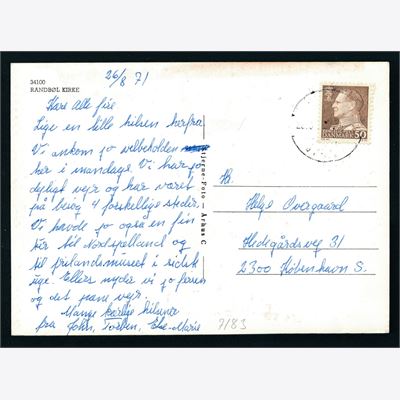 34100
RANDBØL KIRKE
26/8 71
Kære Alle fire
Lige en lille hilsen herfra
Vi ankom jo velbeholden
her i mandags. Vi har jo
dejligt vejr og har været
på besøg 4 forskellige steder.
Vi havde jo også en fin
tur til Nordsjælland og
til frilandsmuseet i sidste
uge. Ellers nyder vi jo ferien
og det pæne vejr.
Mange kærlige hilsner
fra John, Torben, Else-Marie
Stjerne-Foto - Århus C
50
Hr.
Helge Overgaard
Hedegårdsvej 31
2300 København S.
7183